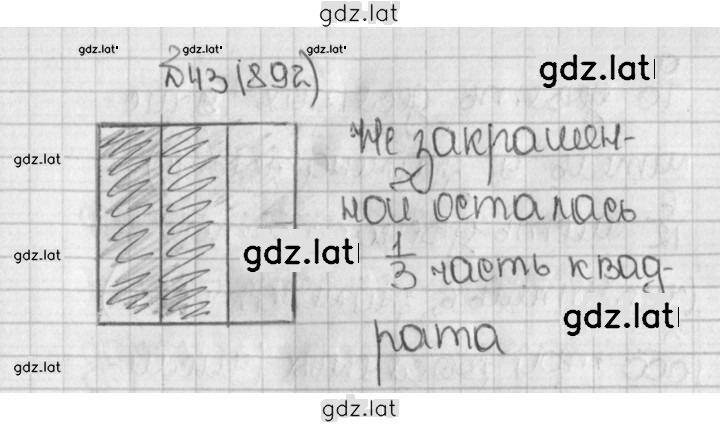 gdz.lat
gdz.lat gdz.lat gdz.lat
843 (892)
gdz.lat
Не закрашен-
gdz.lat
ной осталась
gdz.lat
gdz.lat
1/3 часть квад-
gdz.lat
рата
gdz.lat
gdz.lat